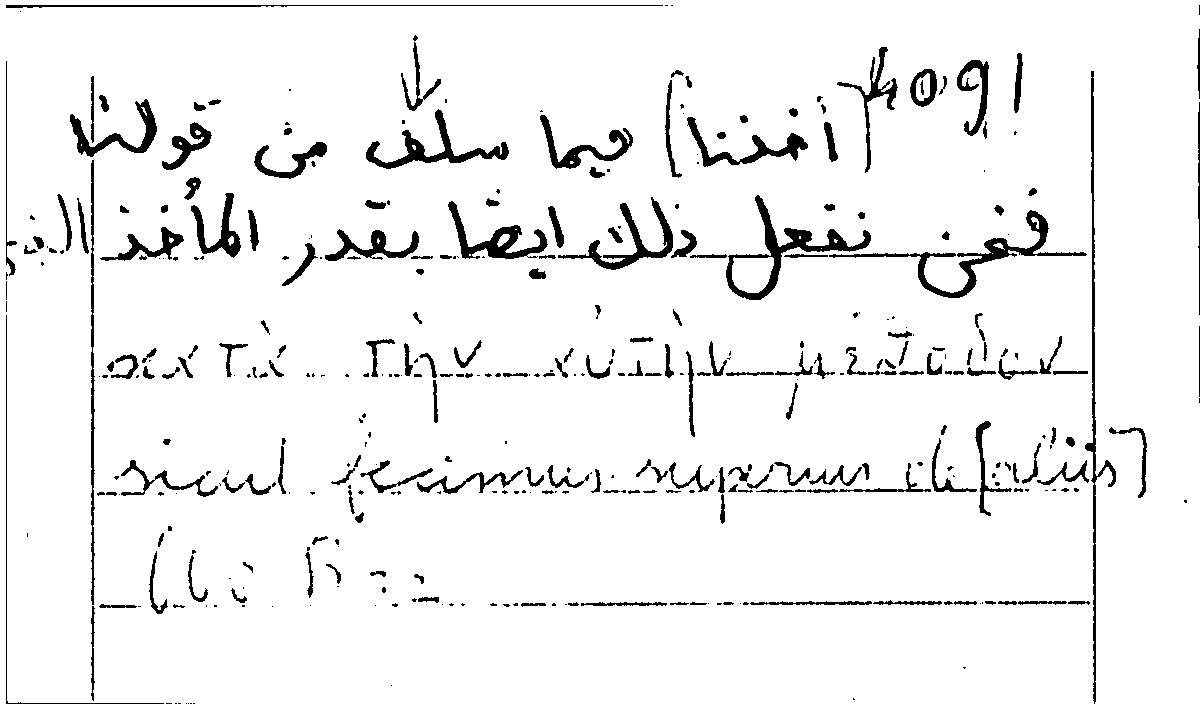 4091 [اخذنا] فيما سلف من قولنا
فنحن نفعل ذلك ايضا بقدر المأخذ الذي
κατὰ τὴν αὐτὴν μέθοδον
sicut fecimus superius de [aliis]